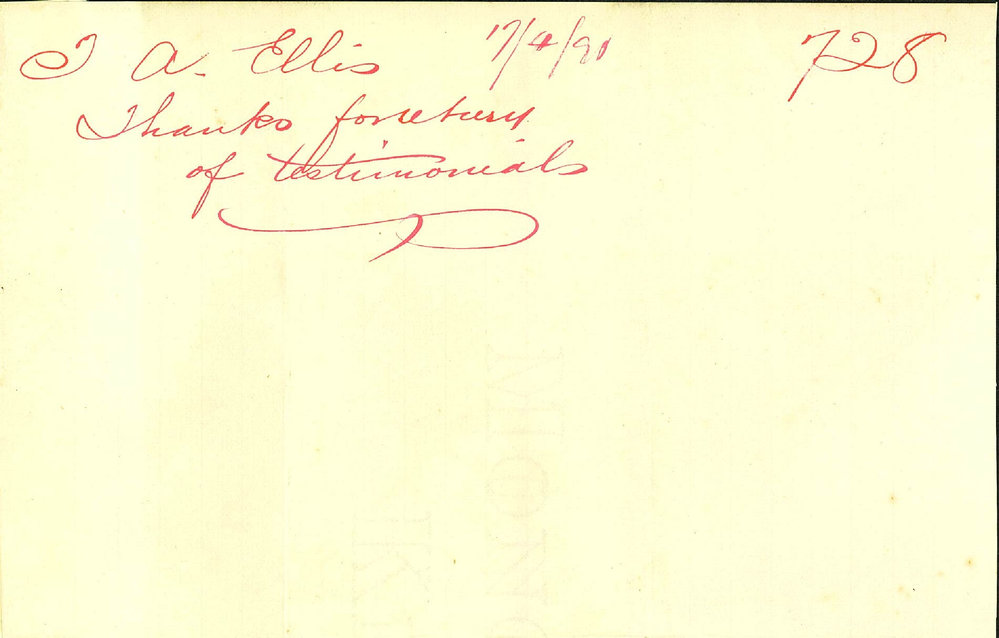 T A. Ellis 17/4/91 728
Thanks for return
of testimonials